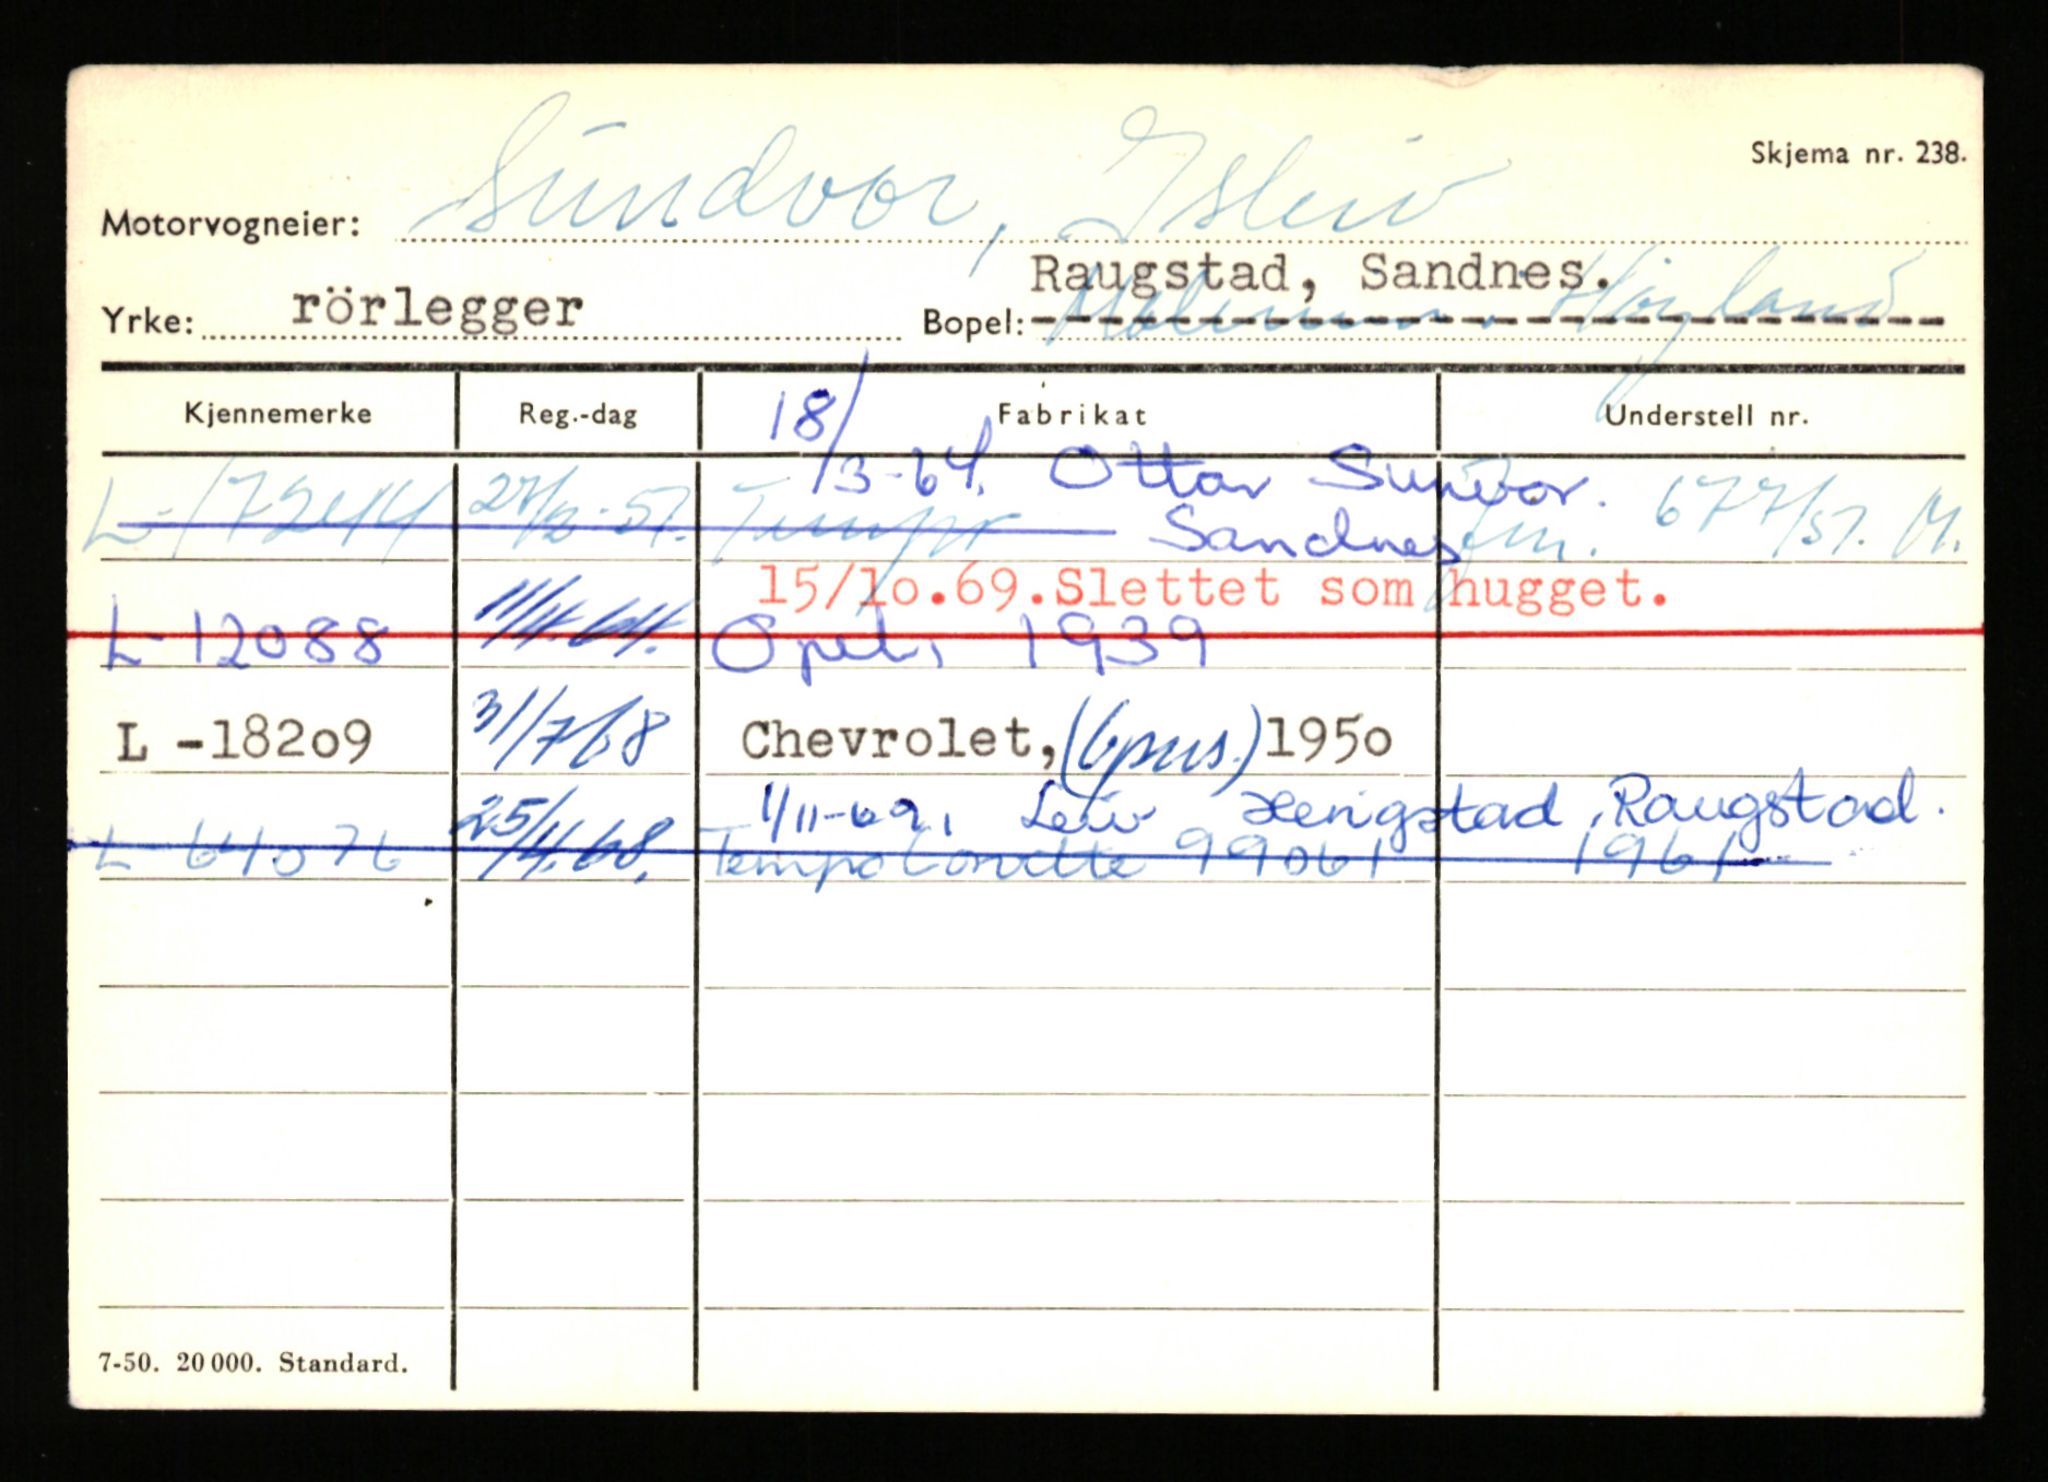 Skjema nr. 238.
Motorvogneier: Sundvor, Isleiv
Raugstad, Sandnes.
Yrke: rörlegger Bopel: Høyland
Kjennemerke Reg.-dag Fabrikat Understell nr.
18/3-64. Ottar Sundvor.
L-17244 -57. Tempo 677/57. M.
Sandnes
15/10.69.Slettet som hugget.
L-12088 11/4.64. Opel, 1939
L -18209 31/7 68 Chevrolet, (6pers.) 1950
1/11-69, Leiv Hengstad, Raugstad.
L 64076 25/4.68. Tempo Corvette 99061 1961
7-50. 20 000. Standard.